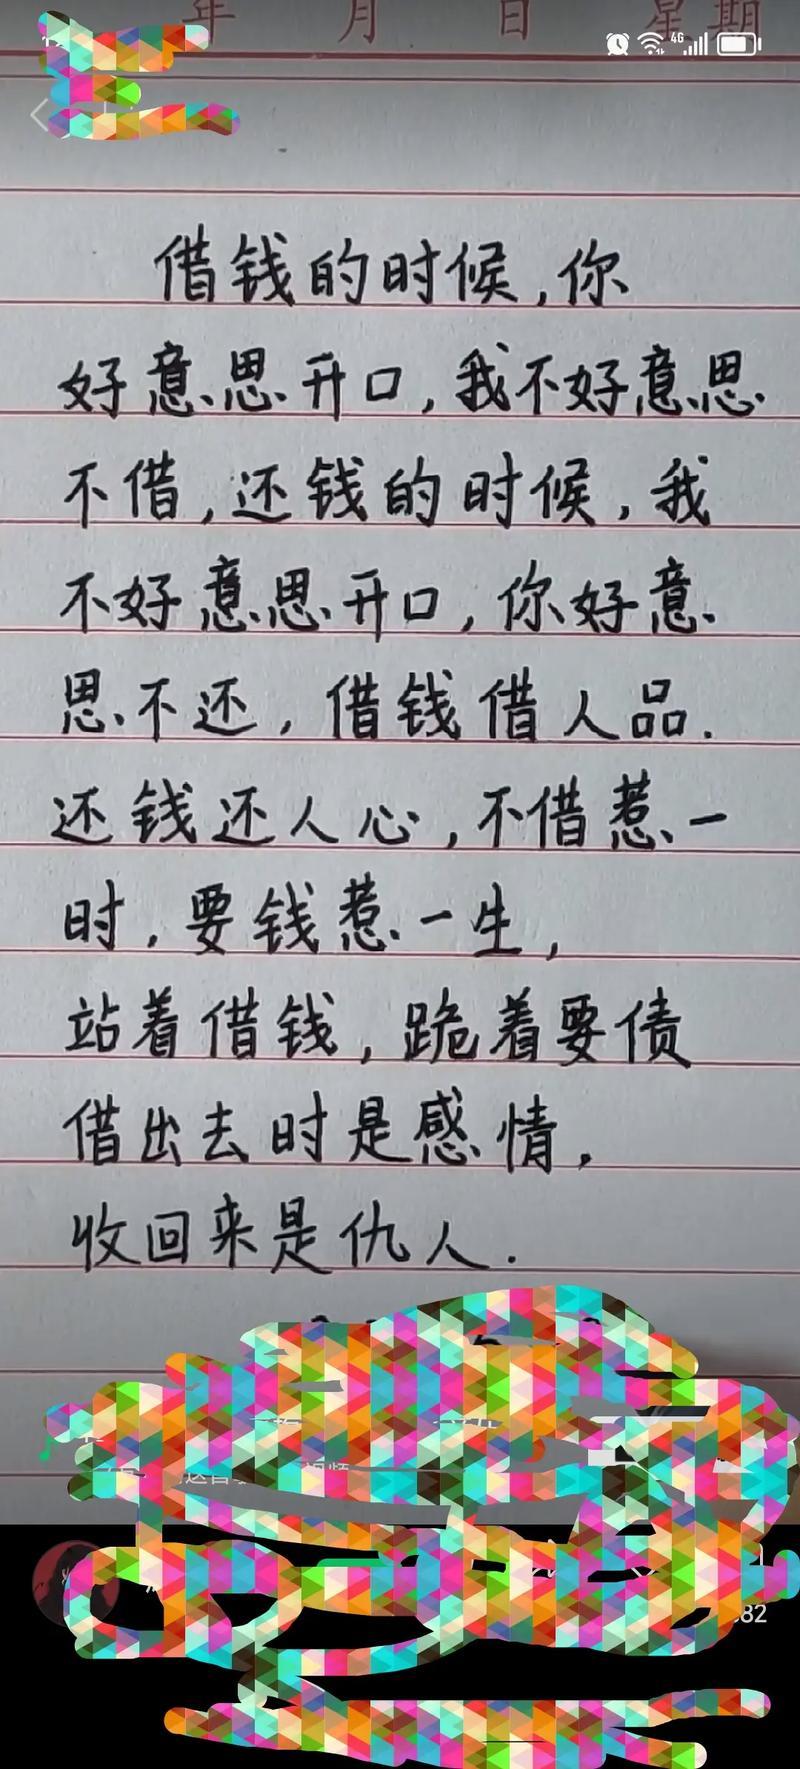 年 月 日 星期
4G
借钱的时候,你
好意思开口,我不好意思
不借,还钱的时候,我
不好意思开口,你好意
思不还,借钱借人品.
还钱还人心,不借惹一
时,要钱惹一生,
站着借钱,跪着要债
借出去时是感情,
收回来是仇人.
82